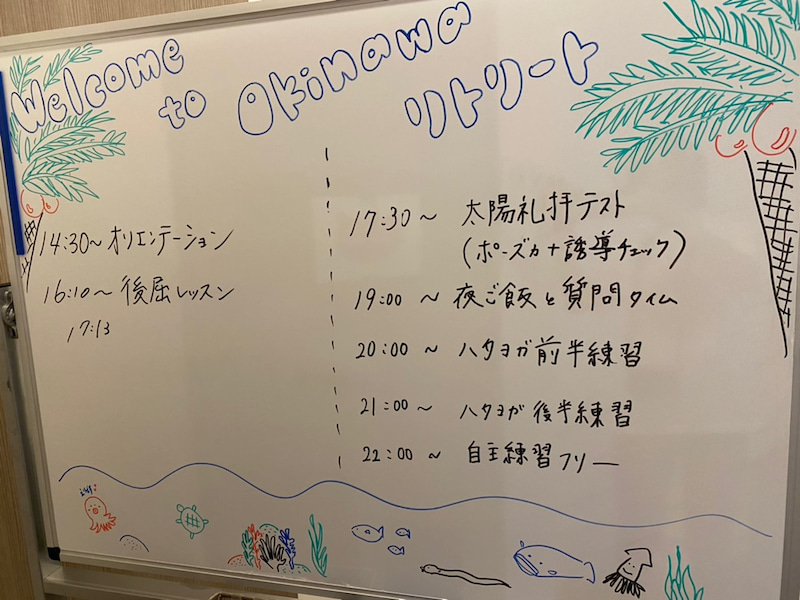 Welcome
to Okinawa
リトリート
14:30~ オリエンテーション
16:10~ 後屈レッスン
17:13
17:30~ 太陽礼拝テスト
(ポーズ力+誘導チェック)
19:00 ~ 夜ご飯と質問タイム
20:00 ~ ハタヨガ前半練習
21:00~ ハタヨガ後半練習
22:00 ~ 自主練習フリー